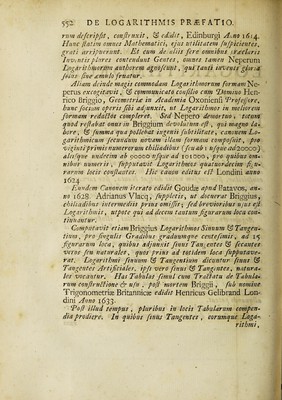 552 DE LOGARITHMIS PRÆFATIO.
rum descripsit, construxit, & edidit, Edinburgi Anno 1614.
Hunc statim omnes Mathematici, ejus utilitatem suspicientes,
grati arripuerunt. Et cum de aliis fere omnibus præclaris
Inventis plures contendant Gentes, omnes tamen Neperum
Logarithmorum authorem agnoscunt, qui tanti inventi gloria
solus sine æmulo fruatur.
Aliam deinde magis commodam Logarithmorum formam Ne-
perus excogitavit, & communicato consilio cum Domino Hen-
rico Briggio, Geometriæ in Academia Oxoniensi Professore,
hunc socium operis sibi adjunxit, ut Logarithmos in meliorem
formam redactos compleret. Sed Nepero demortuo, totum
quod restabat onus in Briggium devolutum est, qui magno la-
bore, & summa qua pollebat ingenii subtilitate, canonem Lo-
garithmicum secundum novam illam formam composuit, pro
viginti primis numerorum chiliadibus (seu ab 1 usque ad 20000)
aliisque undecim ab 90000 usque ad 101000, pro quibus om-
nibus numeris, supputavit Logarithmos quatuordecim figu-
rarum locis constantes. Hic canon editus est Londini anno
1624.
Eundem Canonem iterato edidit Goudæ apud Batavos, an-
no 1628. Adrianus Vlacq, suppletis, ut docuerat Briggius,
chiliadibus intermediis prius omissis; sed brevioribus usus est
Logarithmis, utpote qui ad decem tantum figurarum loca con-
tinuantur.
Computavit etiam Briggius Logarithmos Sinuum & Tangen-
tium, pro singulis Gradibus graduumque centesimis, ad 15
figurarum loca, quibus adjunxit sinus Tangentes & secantes
veros seu naturales, quos prius ad totidem loca supputave-
rat. Logarithmi sinuum & Tangentium dicuntur sinus &
Tangentes Artificiales, ipsi vero sinus & Tangentes, natura-
les vocantur. Has Tabulas simul cum Tractatu de Tabula-
rum constructione & usu, post mortem Briggii, sub nomine
Trigonometriæ Britannicæ edidit Henricus Gelibrand Lon-
dini Anno 1633.
Post illud tempus, pluribus in locis Tabularum compen-
dia prodiere. In quibus sinus Tangentes, eorumque Loga-
rithmi,